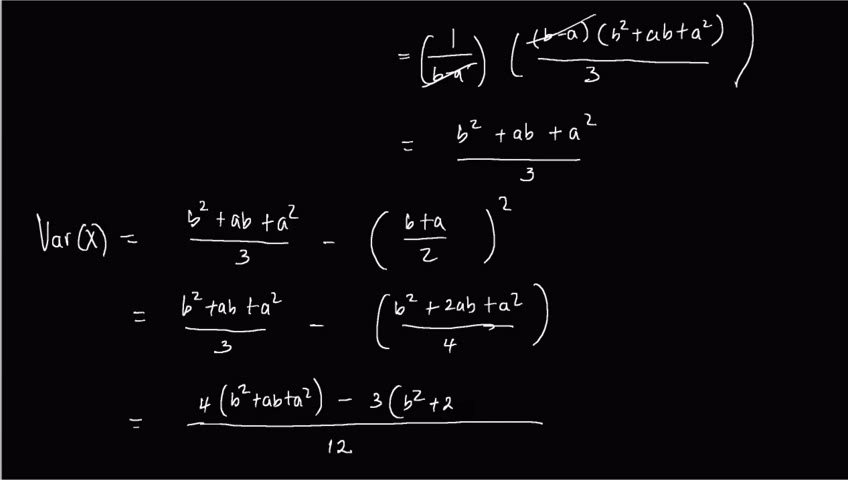 = (1/(b-a)) ((b-a)(b²+ab+a²)/3)
= (b²+ab+a²)/3
Var(X) = (b²+ab+a²)/3 - ((b+a)/2)²
= (b²+ab+a²)/3 - ((b²+2ab+a²)/4)
= (4(b²+ab+a²) - 3(b²+2)/12